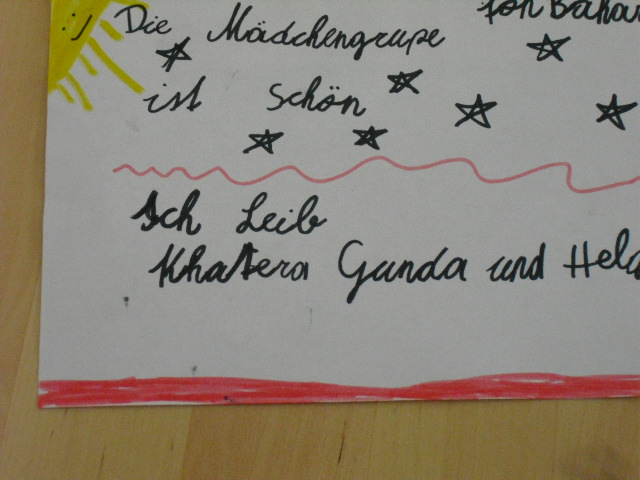 Die Mädchengrupe fon Bahar
ist schön
Ich Leib
Khatera Gunda und Hela